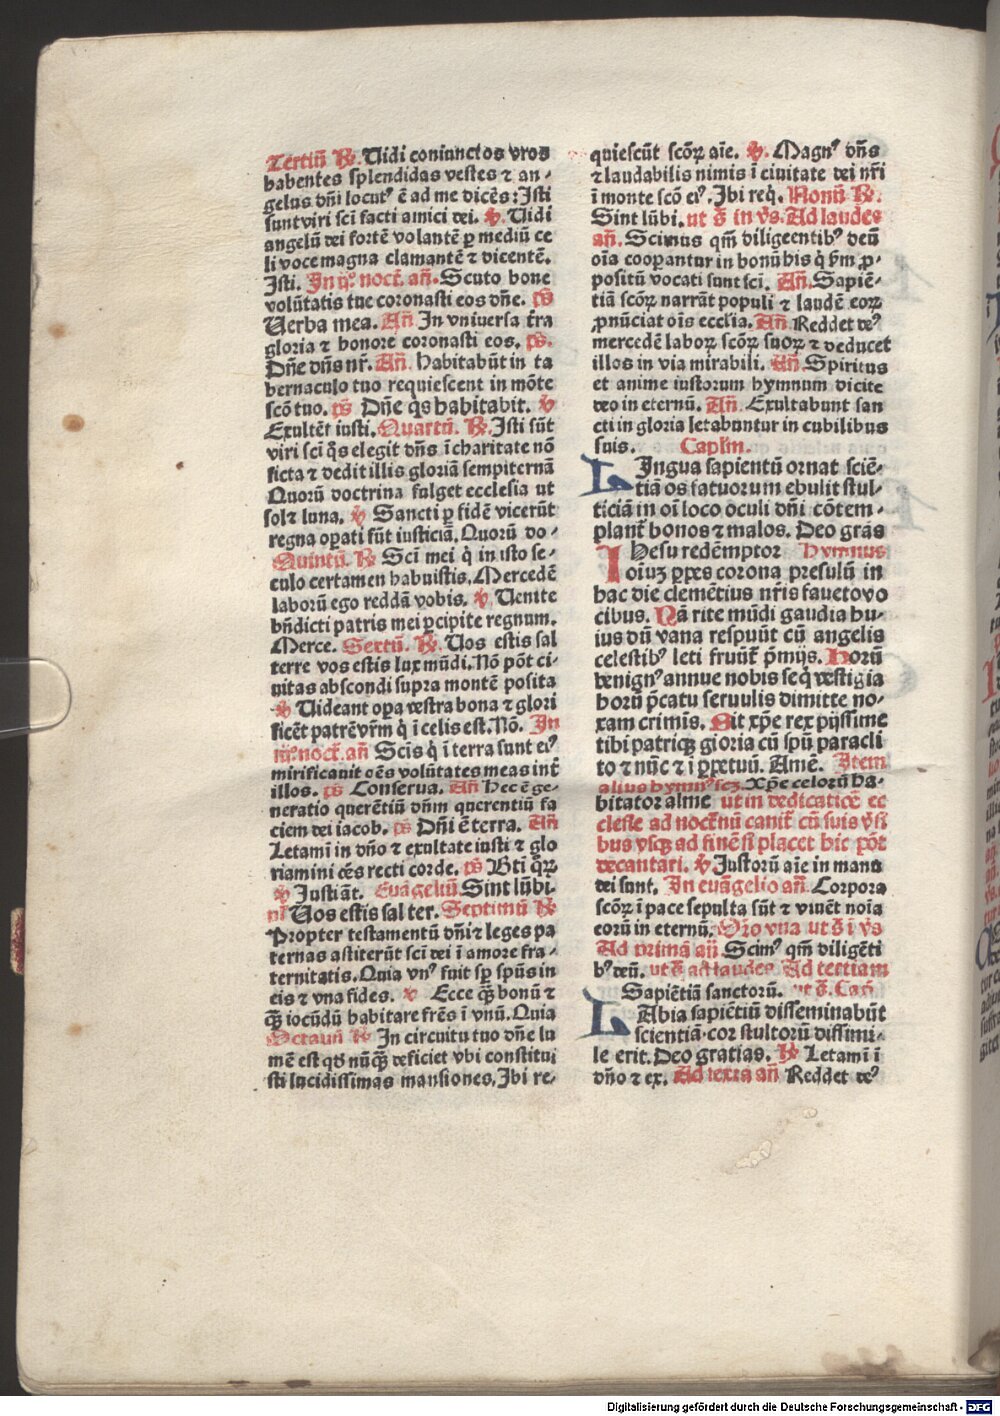 Tertiū ℟. Uidi coniunctos vros
habentes splendidas vestes ⁊ an-
gelus dñi locutꝰ ē ad me dicēs: Isti
sunt viri sci facti amici dei. ℣. Uidi
angelū dei fortē volantē ꝑ mediū ce
li voce magna clamantē ⁊ dicentē.
Isti. In ijº. noct̄. añ. Scuto bone
volūtatis tue coronasti eos dñe. p̄s
Uerba mea. Añ In vniuersa t̄ra
gloria ⁊ honore coronasti eos. p̄s.
Dñe dñs nr̄. Añ. Habitabūt in ta
bernaculo tuo requiescent in mōte
scō tuo. p̄s Dñe q̄s habitabit. ℣
Exultēt iusti. Quartū. ℟. Isti sūt
viri sci q̄s elegit dñs ī charitate nō
ficta ⁊ dedit illis gloriā sempiternā
Quorū doctrina fulget ecclesia ut
sol ⁊ luna. ℣ Sancti ꝑ fidē vicerūt
regna oꝑati sūt iusticiā. Quorū do-
Quintū. ℟ Sci mei q̄ in isto se-
culo certamen habuistis. Mercedē
laborū ego reddā vobis. ℣ Uenite
bn̄dicti patris mei ꝑcipite regnum.
Merce. Sextū. ℟. Uos estis sal
terre vos estis lux mūdi. Nō pōt ci-
uitas abscondi supra montē posita
℣ Uideant oꝑa vestra bona ⁊ glori
ficēt patrē vr̄m q̄ ī celis est. Nō. In
iijº. noct̄. añ Scīs q̄ ī terra sunt eiꝰ
mirificauit oēs volūtates meas int̄
illos. p̄s Conserua. Añ Hec ē ge-
neratio querētiū dñm querentiū fa
ciem dei iacob. p̄s Dñi ē terra. Añ
Letamī in dño ⁊ exultate iusti ⁊ glo
riamini oēs recti corde. p̄s Bti q̄ꝝ
℣ Justi āt. Euāgeliū Sint lūbi.
Uos estis sal ter. Septimū ℟
Propter testamentū dñi ⁊ leges pa
ternas astiterūt sci dei ī amore fra-
ternitatis. Quia vnꝰ fuit sꝑ spūs in
eis ⁊ vna fides. ℣ Ecce q̄ꝫ bonū ⁊
q̄ꝫ iocūdū habitare frēs ī vnū. Quia
Octauū ℟ In circuitu tuo dñe lu
mē est qd̄ nūq̄ꝫ deficiet vbi constitui
sti lucidissimas mansiones. Ibi re-
quiescūt scōꝝ aīe. ℣. Magnꝰ dñs
⁊ laudabilis nimis ī ciuitate dei nr̄i
ī monte scō eiꝰ. Ibi req̄. Nonū ℟.
Sint lūbi. ut s̄ in v̄s. Ad laudes
añ. Scimus qm̄ diligentibꝰ deū
oīa cooꝑantur in bonū his q̄ ẜm ꝓ-
positū vocati sunt sci. Añ. Sapiē-
tiā scōꝝ narrāt populi ⁊ laudē eoꝝ
ꝓnūciat oīs ecclīa. Añ Reddet deꝰ
mercedē laboꝝ scōꝝ suoꝝ ⁊ deducet
illos in via mirabili. Añ. Spiritus
et anime iustorum hymnum dicite
deo in eternū. Añ. Exultabunt san
cti in gloria letabuntur in cubilibus
suis. Caplm̄.
LIngua sapientū ornat sciē-
tiā os fatuorum ebulit stul-
ticiā in oī loco oculi dñi cōtem-
plant̄ bonos ⁊ malos. Deo grās
IHesu redēmptor Hymnus
oīuꝫ ꝑpes corona presulū in
hac die clemētius nr̄is faueto vo
cibus. Nā rite mūdi gaudia hu-
ius dū vana respuūt cū angelis
celestibꝰ leti fruūt̄ p̄mijs. Horū
benignꝰ annue nobis seq̄ vestigia
horū p̄catu seruulis dimitte no-
xam crimīs. Sit xp̄e rex pijssime
tibi patriqꝫ gloria cū spū paracli
to ⁊ nūc ⁊ ī ꝑpetuū. Amē. Item
alius hymnꝰ scꝫ. Xp̄e celorū ha-
bitator alme ut in dedicatiōe ec
clesie ad noct̄nū canit̄ cū suis v̄si
bus vsqꝫ ad finē si placet hic pōt
decantari. ℣ Justorū aīe in manu
dei sunt. In euāgelio añ. Corpora
scōꝝ ī pace sepulta sūt ⁊ viuēt noīa
eorū in eternū. Orō vna ut s̄ ī v̄s
Ad primā añ Scimꝰ qm̄ diligēti
bꝰ deū. ut s̄ ad laudes Ad tertiam
Sapiētiā sanctorū. ut s̄. Cap̄
LAbia sapiētiū disseminabūt
scientiā. cor stultorū dissimi-
le erit. Deo gratias. ℟ Letamī ī
dño ⁊ ex. Ad sexta añ Reddet deꝰ
Digitalisierung gefördert durch die Deutsche Forschungsgemeinschaft - DFG